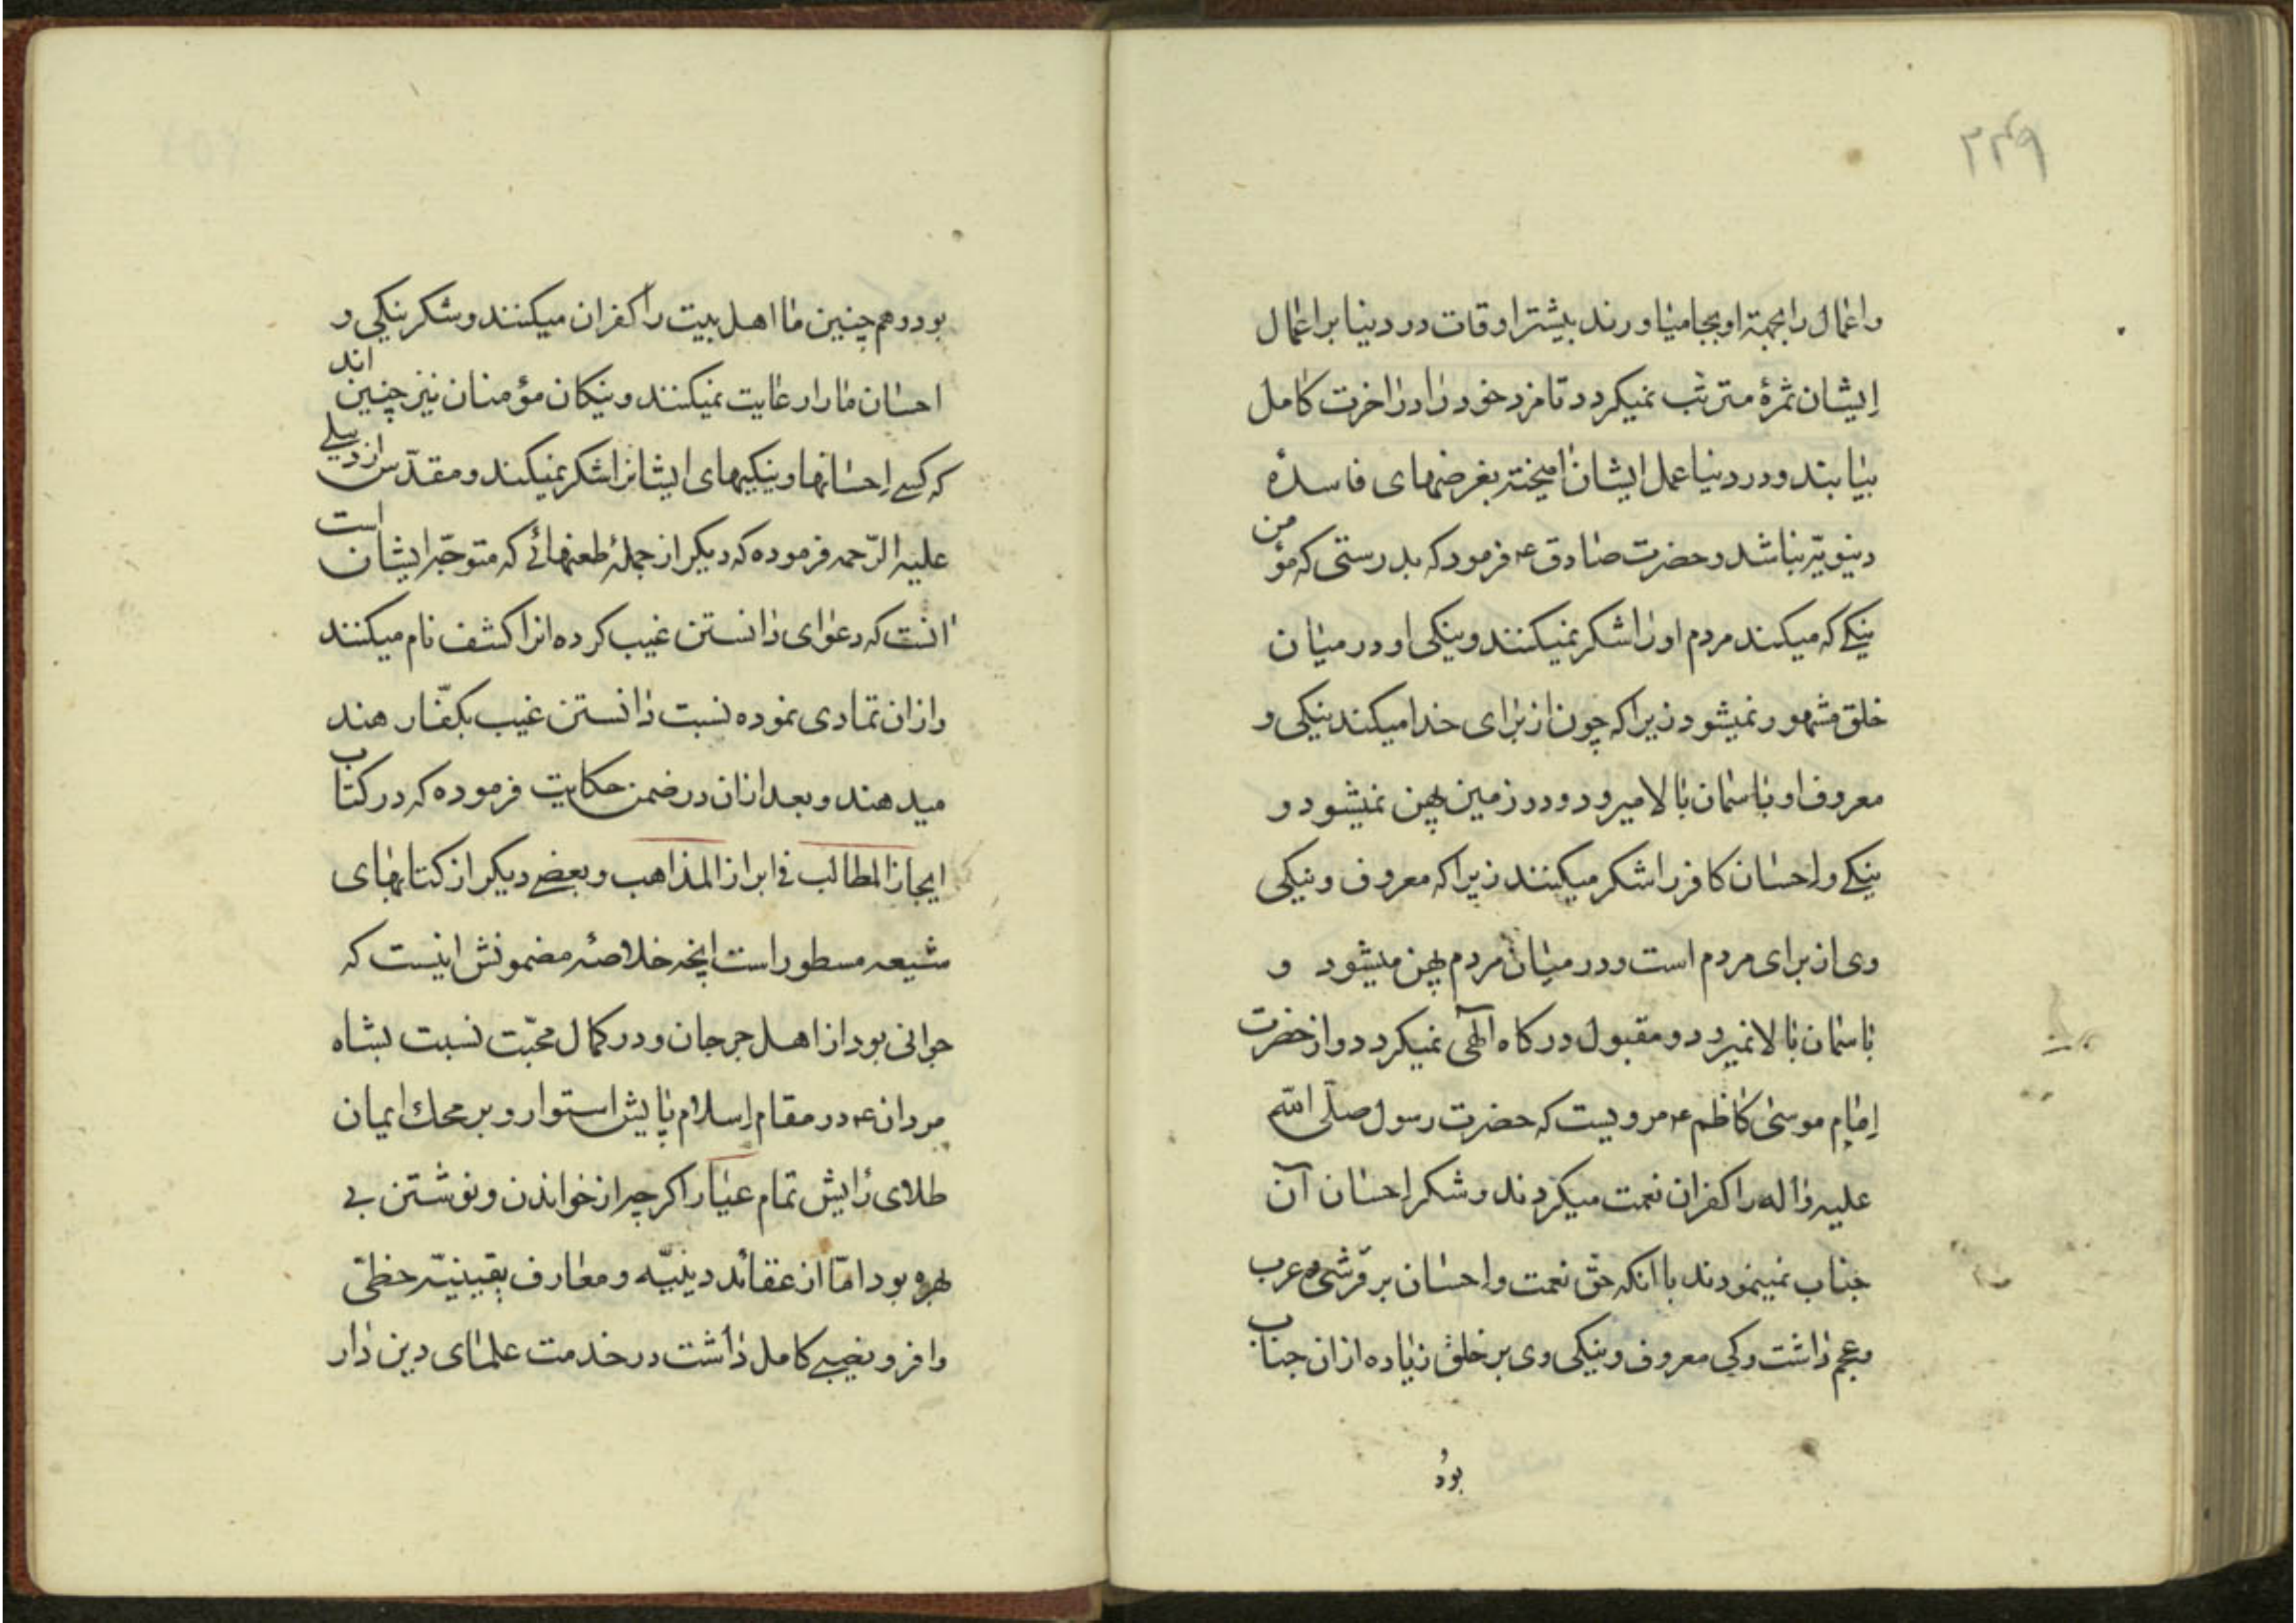 ۲۴۹
واعمال را بجهة او بجا میاورند بیشتر اوقات در دنیا بر اعمال
ایشان ثمرهٔ مترتب نمیکردد تا مزد خود را در اخرت کامل
بیابند و در دنیا عمل ایشان امیخته بغرضهای فاسدهٔ
دینویّه نباشد و حضرت صادق ع فرمود که بدرستی که مؤمن
نیکے که میکند مردم او را شکر نمیکنند و نیکی او در میان
خلق مشهور نمیشود زیرا که چون از برای خدا میکند نیکی و
معروف او باسمان بالا میرود و در زمین پهن نمیشود و
نیکے و احسان کافر را شکر میکنند زیرا که معروف و نیکی
وی از برای مردم است و در میان مردم پهن میشود و
باسمان بالا نمیرود و مقبول درکاه الهی نمیکردد و از حضرت
امام موسی کاظم ع مرویست که حضرت رسول صلّی الله
علیه واله را کفران نعمت میکردند و شکر احسان آن
جناب نمینمودند با انکه حق نعمت و احسان بر قرشی و عرب
و عجم داشت و کی معروف و نیکی وی بر خلق زیاده از ان جناب
بود
بود و هم چنین ما اهل بیت را کفران میکنند و شکر نیکی و
احسان ما را رعایت نمیکنند و نیکان مؤمنان نیز چنین اند
که کسے احسانها و نیکیهای ایشانرا شکر نمیکند و مقدّس اردبیلے
علیه الرّحمه فرموده که دیکر از جملهٔ طعنهائے که متوجّه ایشان است
انست که دعوای دانستن غیب کرده انرا کشف نام میکنند
و از ان تمادی نموده نسبت دانستن غیب بکفّار هند
میدهند و بعد ازان در ضمن حکایت فرموده که در کتاب
ایجاز المطالب فی ابراز المذاهب و بعضے دیکر از کتابهای
شیعه مسطور است انچه خلاصهٔ مضمونش اینست که
جوانی بود از اهل جرجان و در کمال محبّت نسبت بشاه
مردان ع در مقام اسلام پایش استوار و بر محك ایمان
طلای رایش تمام عیار اکرچه از خواندن و نوشتن بے
بهره بود امّا از عقائد دینیّه و معارف یقینیّه حظّی
وافر و نصیبے کامل داشت در خدمت علمای دین دار